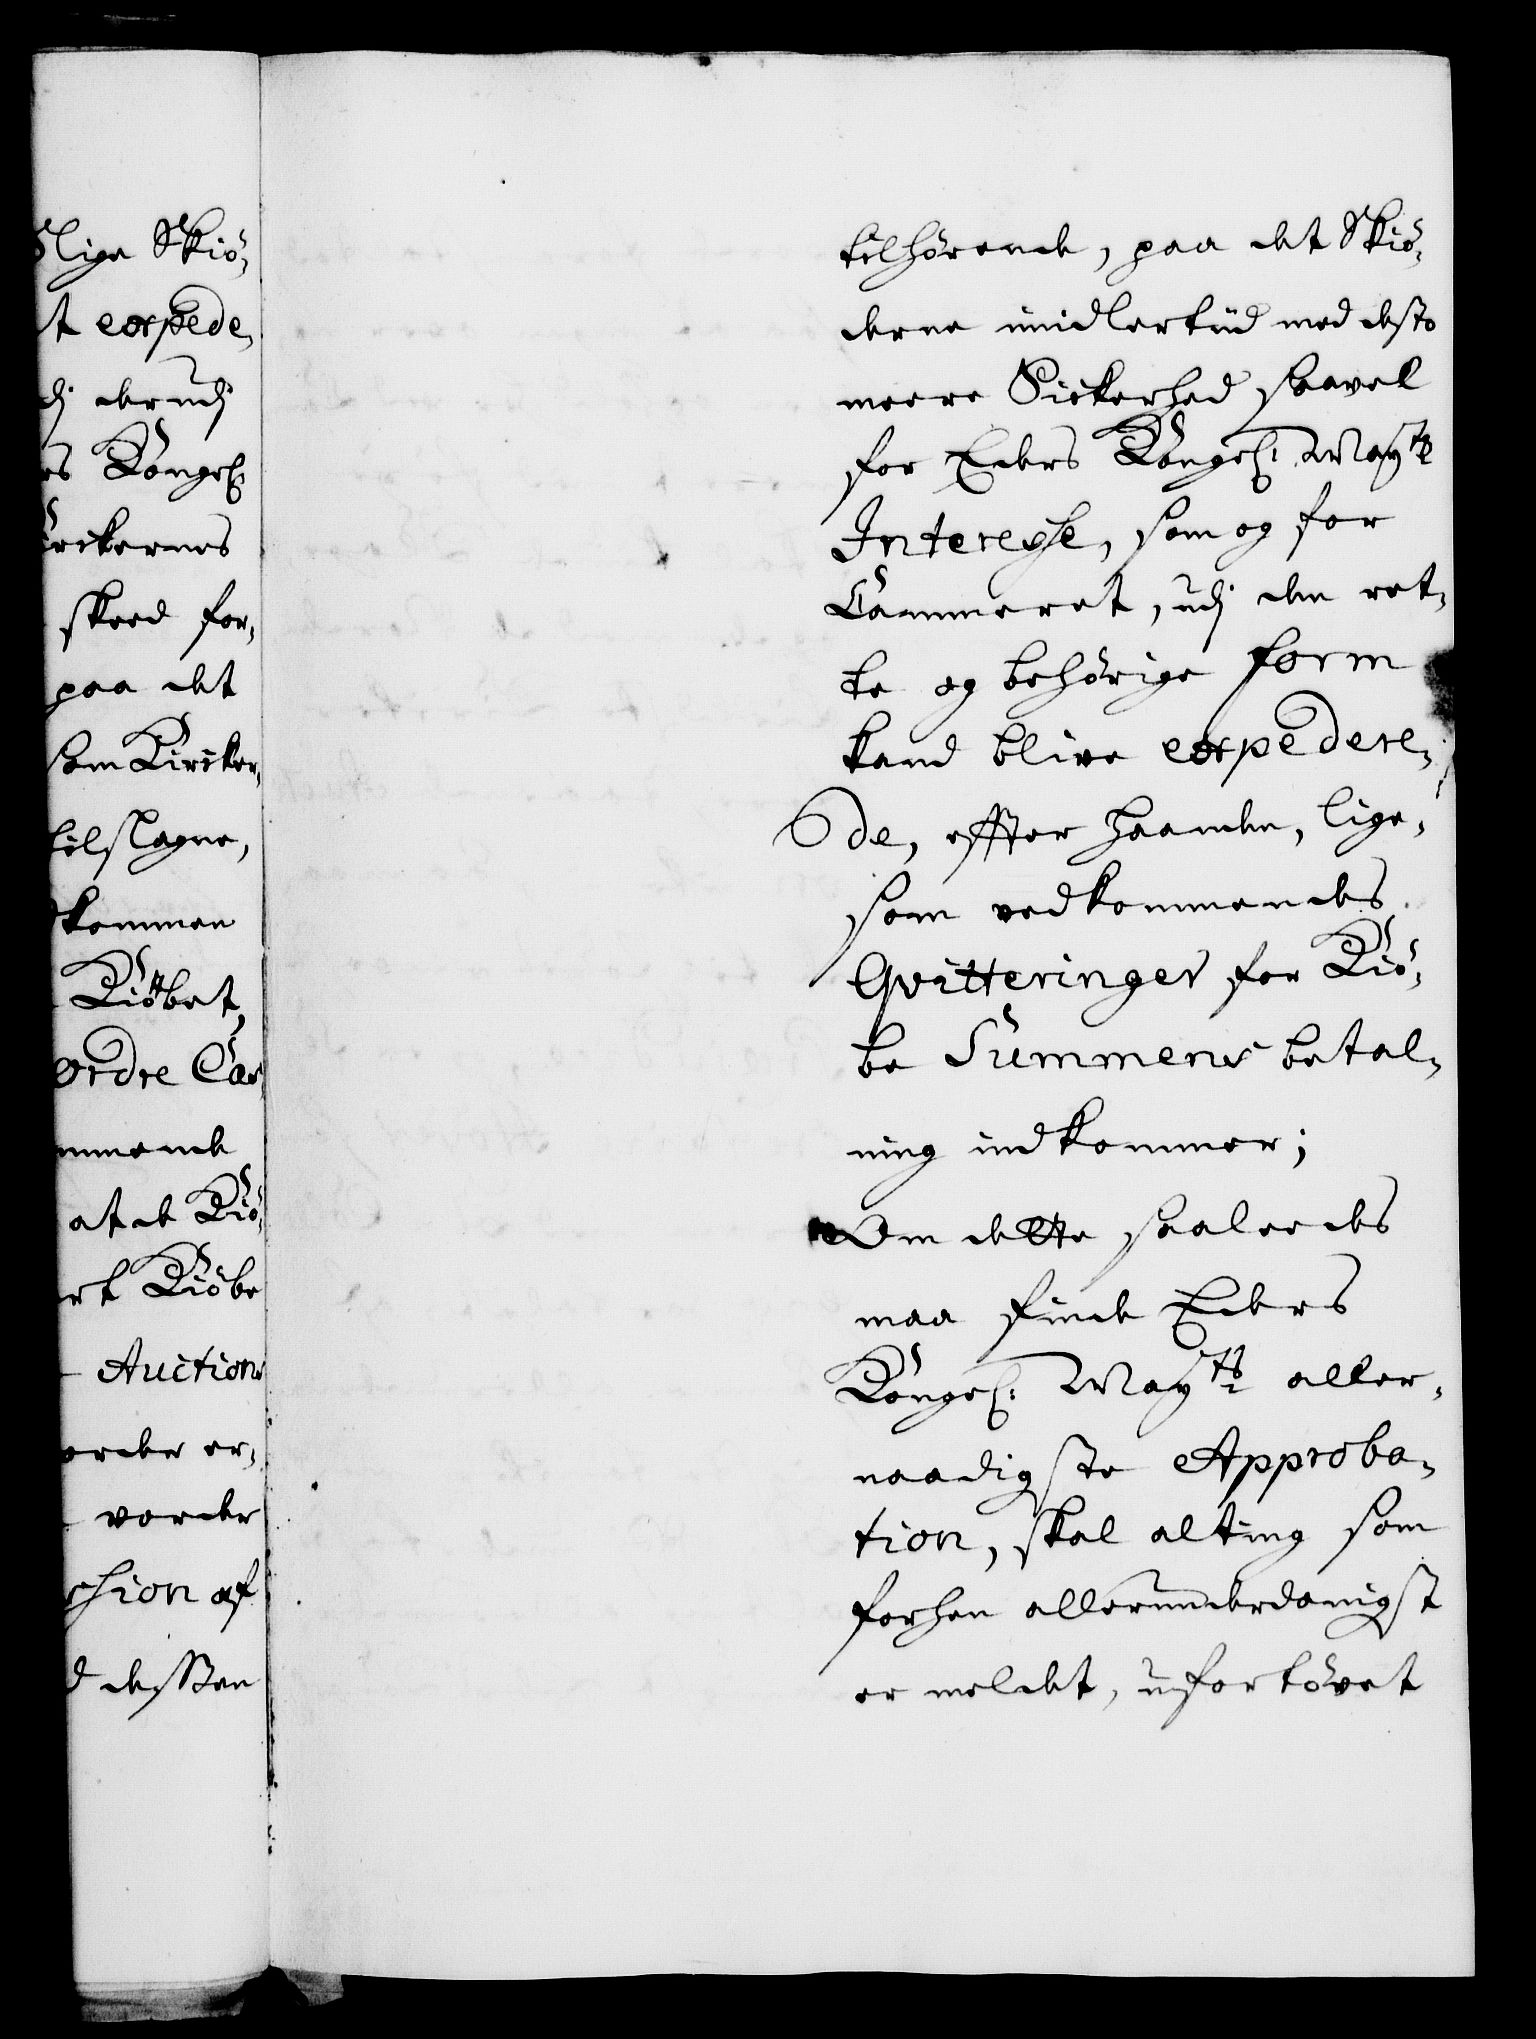 lige Skiö-
t expede-
dj derudj
es Kongel:
irckernes
skeed for-
paa det
som Kircker-
tilslagne,
dkommen
Kiöbet,
ordre Cas
mmende
at de Kiö-
rt Kiöbe
Auctions
order er-
vorder
sion af
d dessen
tilhörende, paa det Skiö-
derne imidlertiid med desto
meere Sickerhed saavel
for Eders Kongel: Mayts
Interesse, som og for
Cammeret, udj den ret-
te og behörige form
kand blive expedere-
de, effter haanden, lige-
som vedkommendes
Qvitteringer for Kiö-
be Summens betal-
ning indkommer;
Om dette saaledes
maa finde Eders
Kongel: Mayts aller-
naadigste Approba-
tion, skal alting som
forhen allerunderdanigst
er meldet, ufortövet